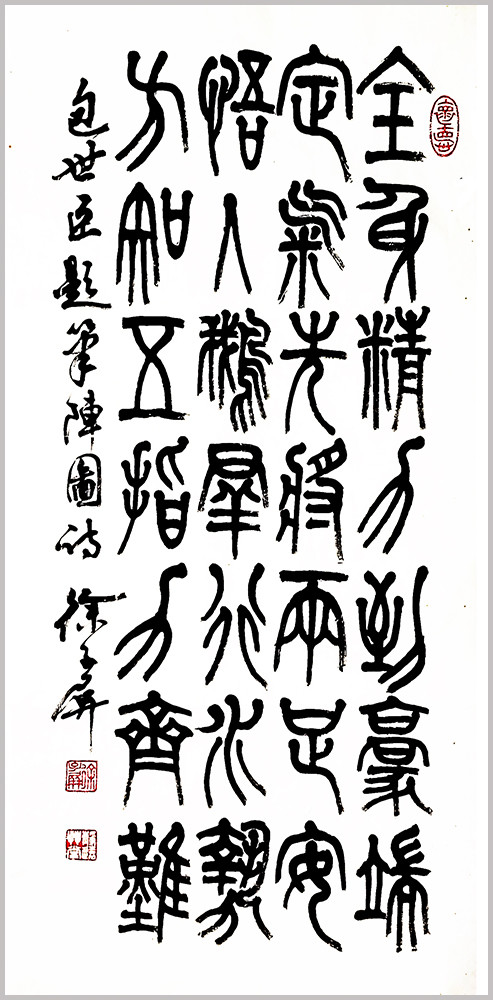 全身精力到豪端
定氣先將兩足安
悟入鵝羣行水勢
方知五指力齊難
包世臣題筆陣圖詩 徐子屏